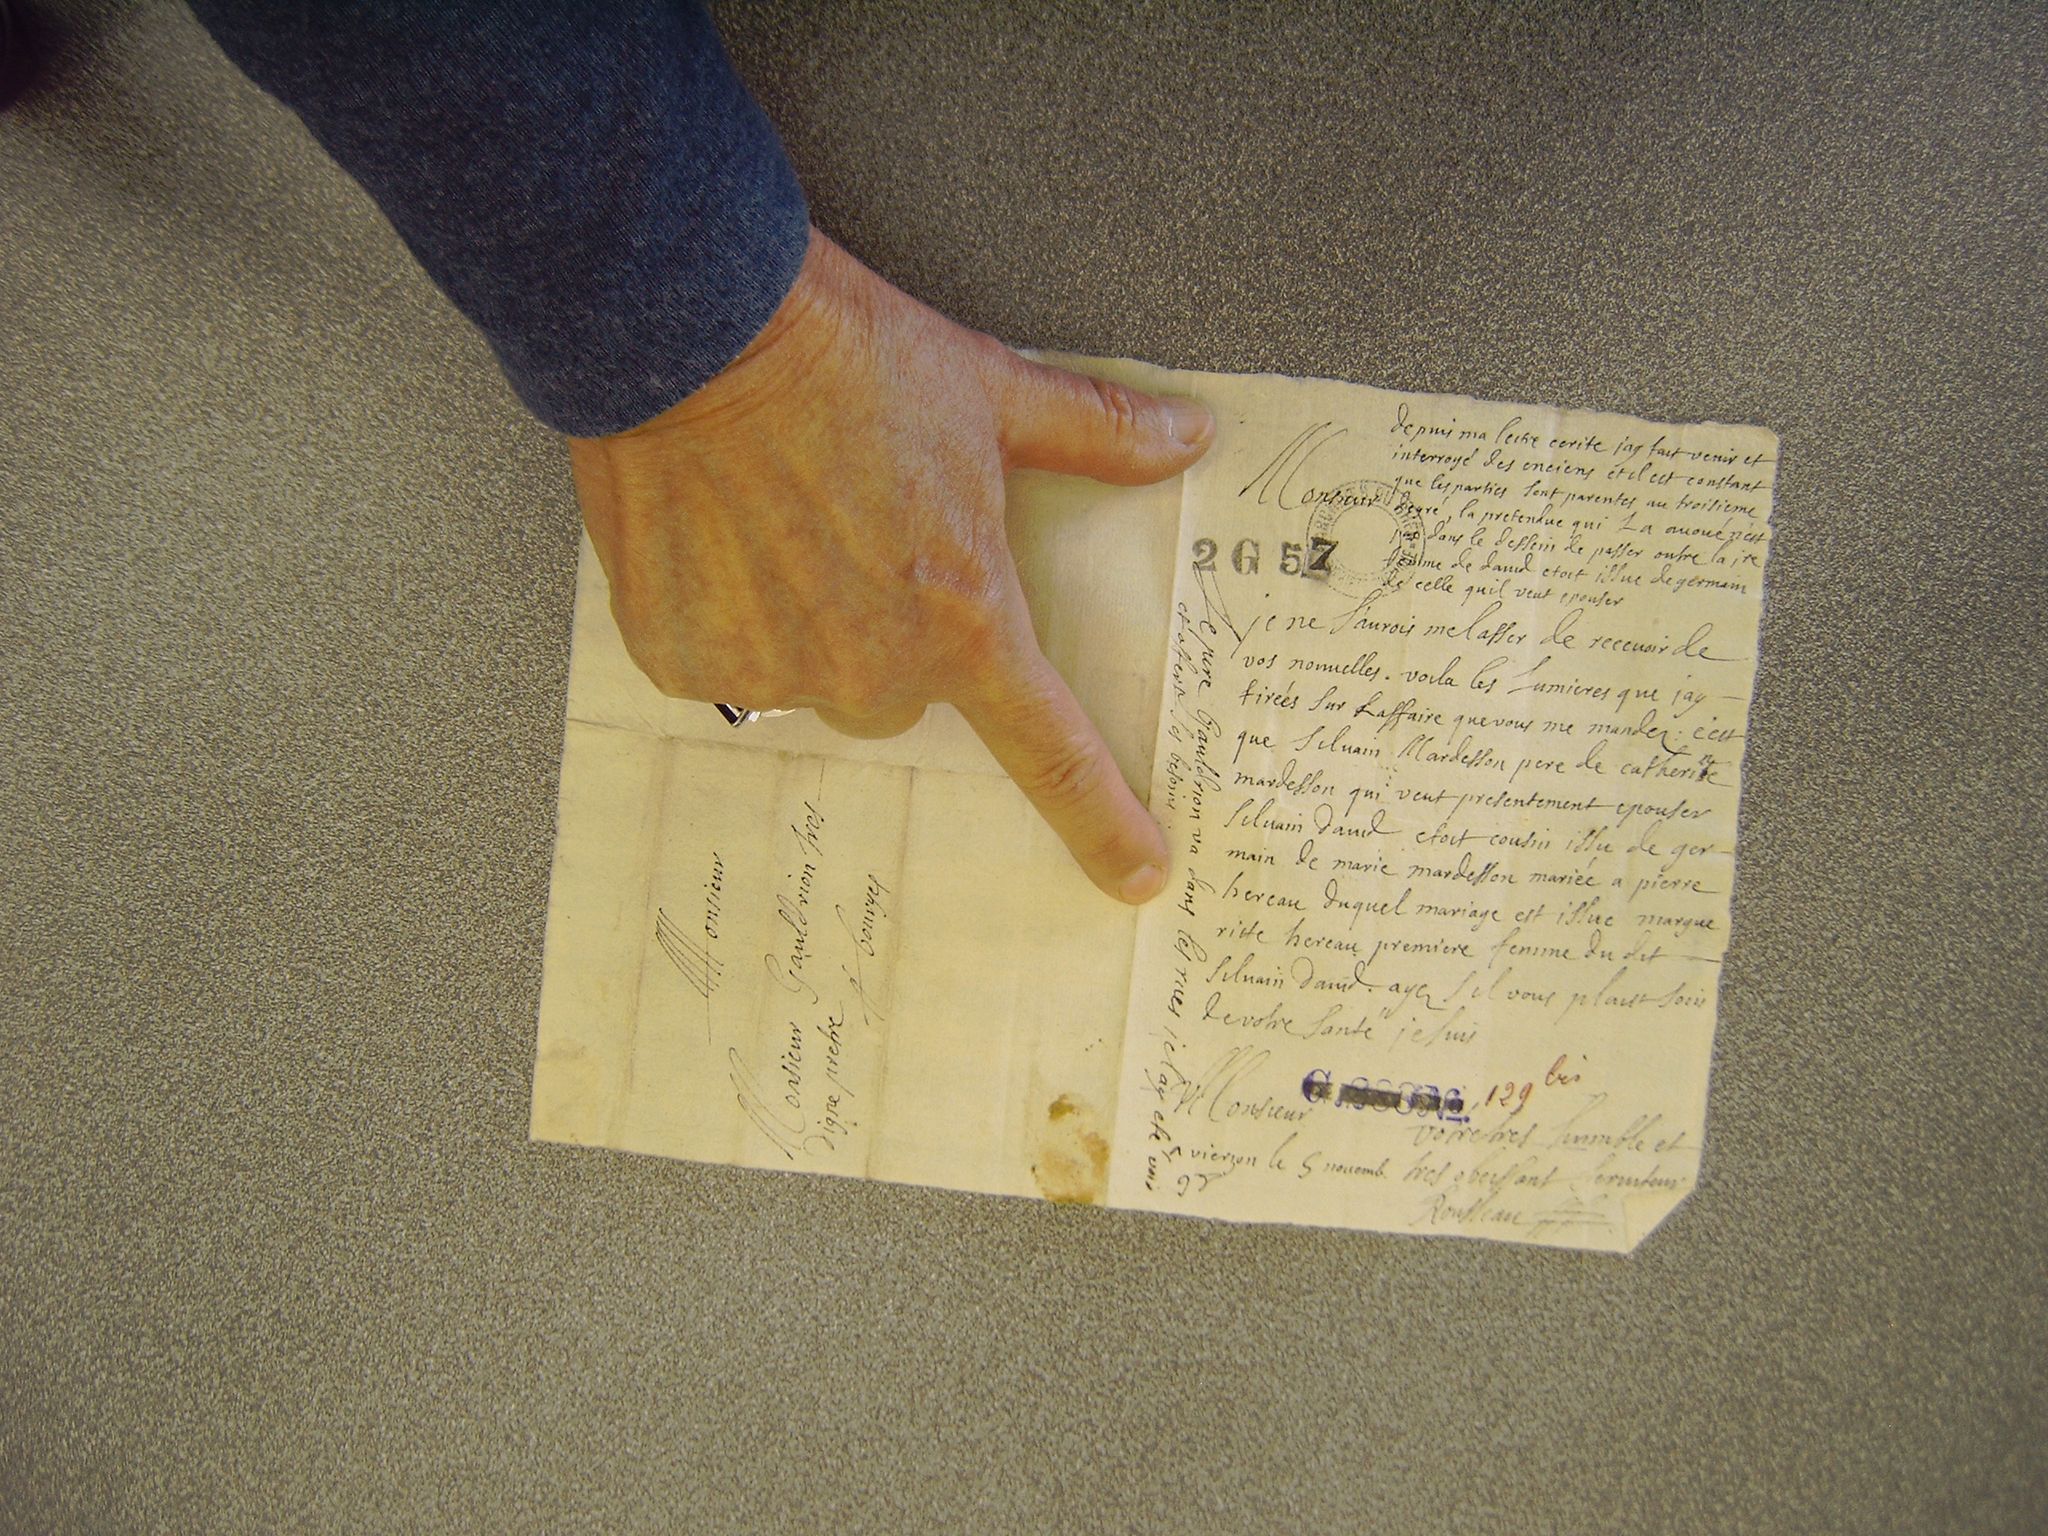 depuis ma lettre ecrite jay fait venir et
interrogé des enciens et il est constant
que les parties sont parentes au troisieme
degré, la pretendue qui la avoué n'est
pas dans le dessein de passer outre la 1re
femme de david etoit issue de germain
de celle quil veut epouser
Monsieur
2 G 57
je ne saurois me lasser de recevoir de
vos nouvelles. voila les lumieres que jay
tirées sur laffaire que vous me mandez: c'est
que silvain Mardesson pere de catherine
mardesson qui veut presentement epouser
silvain david etoit cousin issu de ger
main de marie mardesson mariée a pierre
hereau duquel mariage est issue margue
ritte hereau premiere femme du dit
silvain david. ayez sil vous plaist soin
de votre santé je suis
Monsieur
129 bis
votre tres humble et
vierzon le 5 novemb. tres obeissant serviteur
Rousseau
Le pere Gauldrion va dans les rues je lay eté voir
et offert ses besoins
Monsieur
Monsieur Gauldrion tres
digne pretre
A bourges